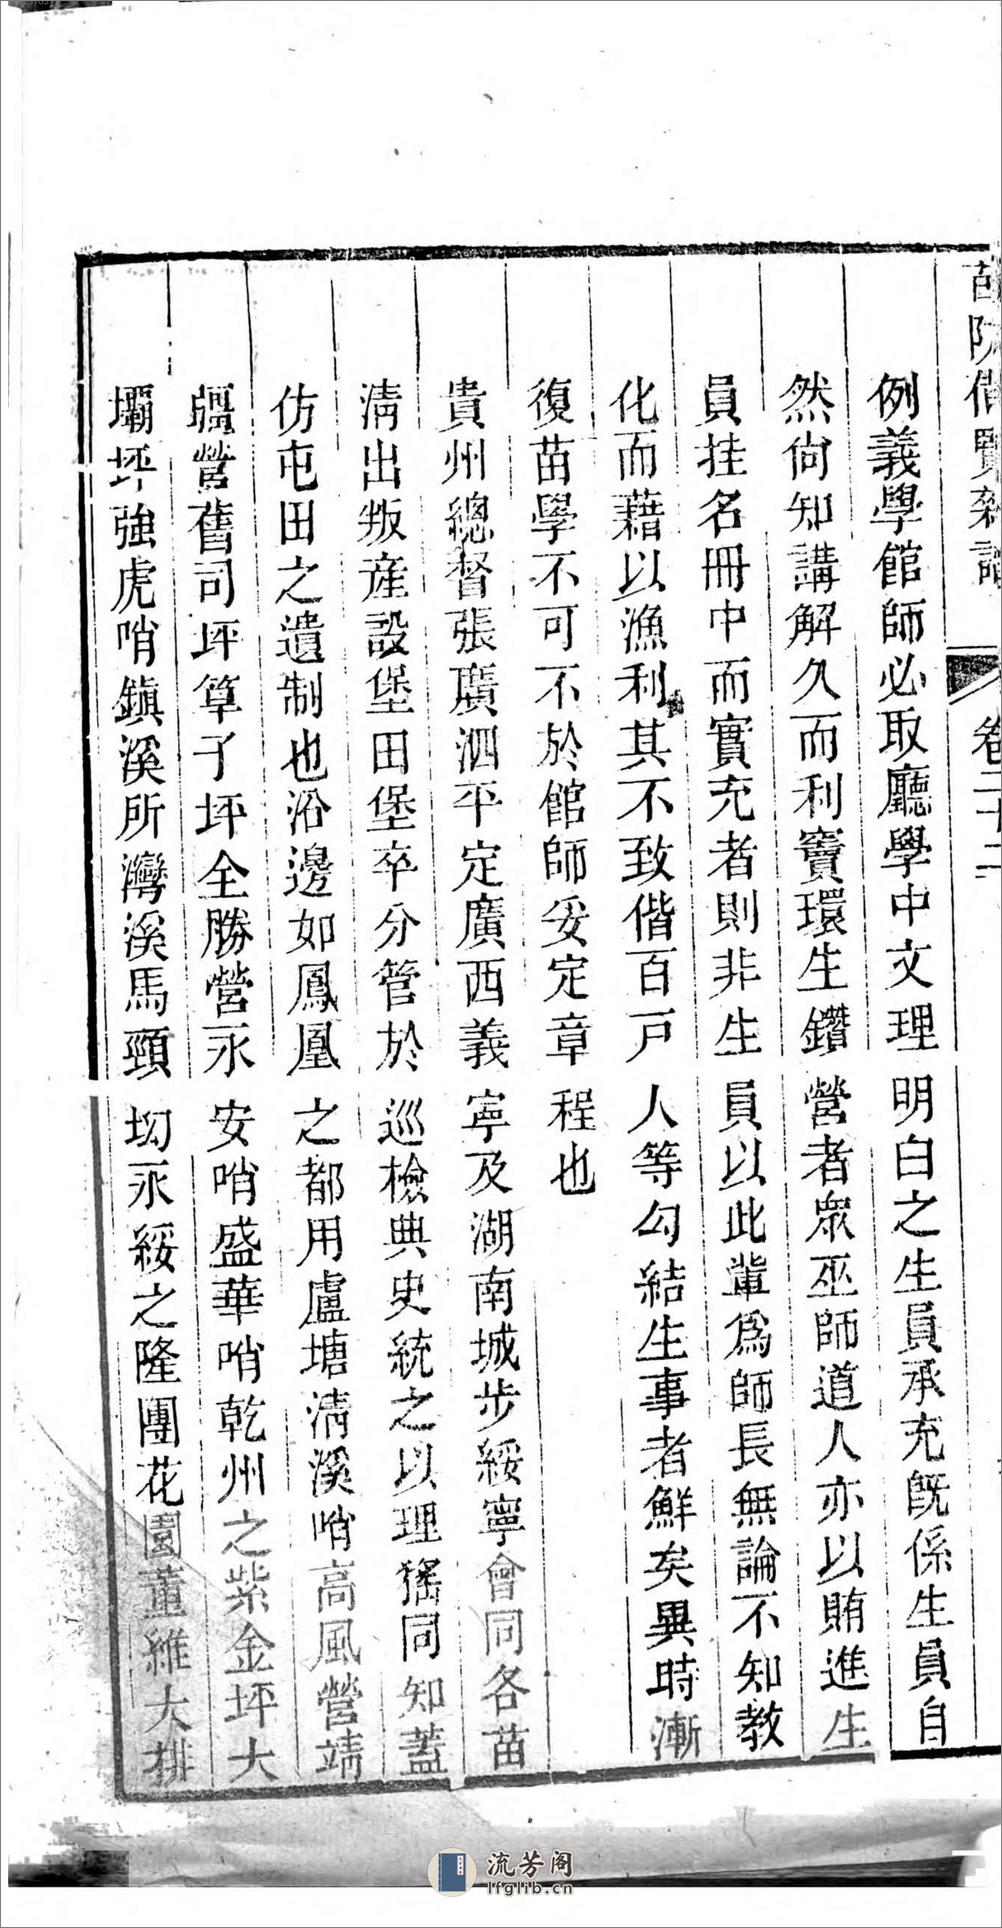 苗防備覽雜識
卷二十二
例義學館師必取廳學中文理明白之生員承充旣係生員自
然尙知講解久而利竇環生鑽營者眾巫師道人亦以賄進生
員挂名冊中而實充者則非生員以此輩爲師長無論不知教
化而藉以漁利其不致偕百戸人等勾結生事者鮮矣異時漸
復苗學不可不於館師妥定章程也
貴州總督張廣泗平定廣西義寧及湖南城步綏寧會同各苗
淸出叛產設堡田堡卒分管於巡檢典史統之以理猺同知蓋
仿屯田之遺制也沿邊如鳳凰之都用盧塘淸溪哨高風營靖
疆營舊司坪箄子坪全勝營永安哨盛華哨乾州之紫金坪大
壩坪強虎哨鎮溪所灣溪馬頸坳永綏之隆團花園董維大排
流芳阁
lfglib.cn